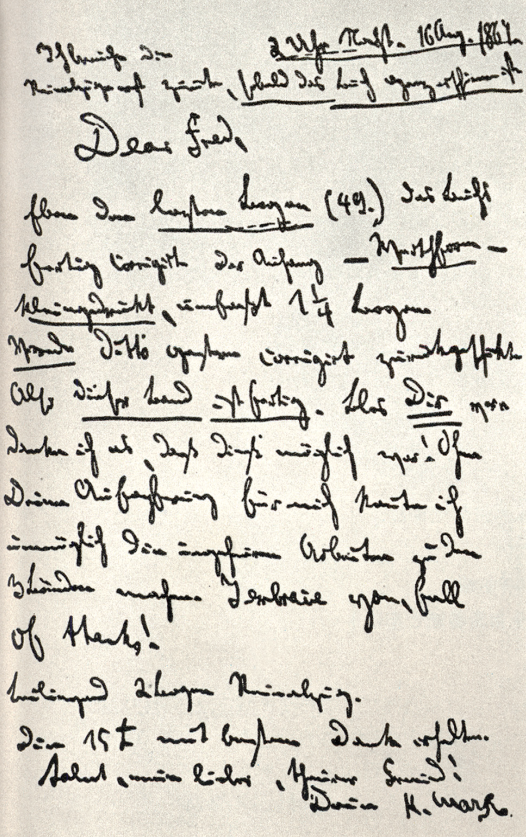 Ich brauche die 2 Uhr Nacht. 16 Aug. 1867.
Reinabzüge erst zurück, sobald das Buch ganz erschienen ist.
Dear Fred,
Eben den letzten Bogen (49.) des Buchs
fertig corrigirt. Der Anhang – Werthform –
kleingedruckt, umfaßt 1 1/4 Bogen.
Vorrede ditto gestern corrigirt zurückgeschickt.
Also dieser Band ist fertig. Blos Dir ver
danke ich es, daß dieß möglich war! Ohne
Deine Aufopferung für mich konnte ich
unmöglich die ungeheuren Arbeiten zu den
3 Bänden machen. I embrace you, full
of thanks!
Beiliegend 2 Bogen Reinabzug.
Die 15 £ mit bestem Dank erhalten.
Salut, mein lieber, theurer Freund!
Dein K. Marx.